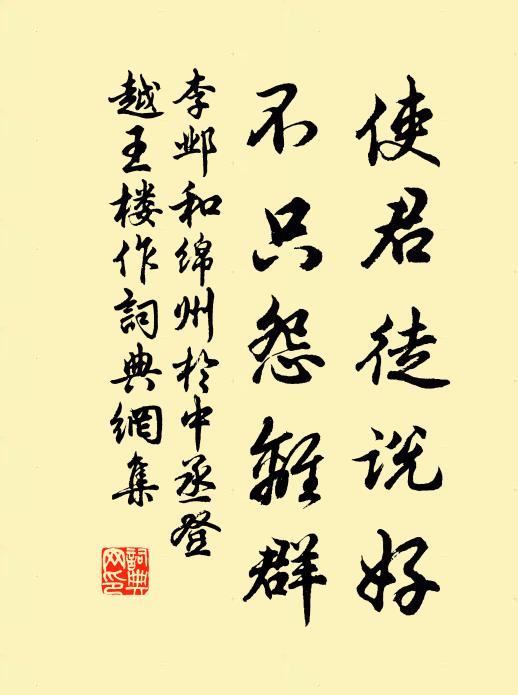 使君徒说好
不只怨離群
李邺和绵州於中丞登
越王楼作詞典網集
詞典
网印